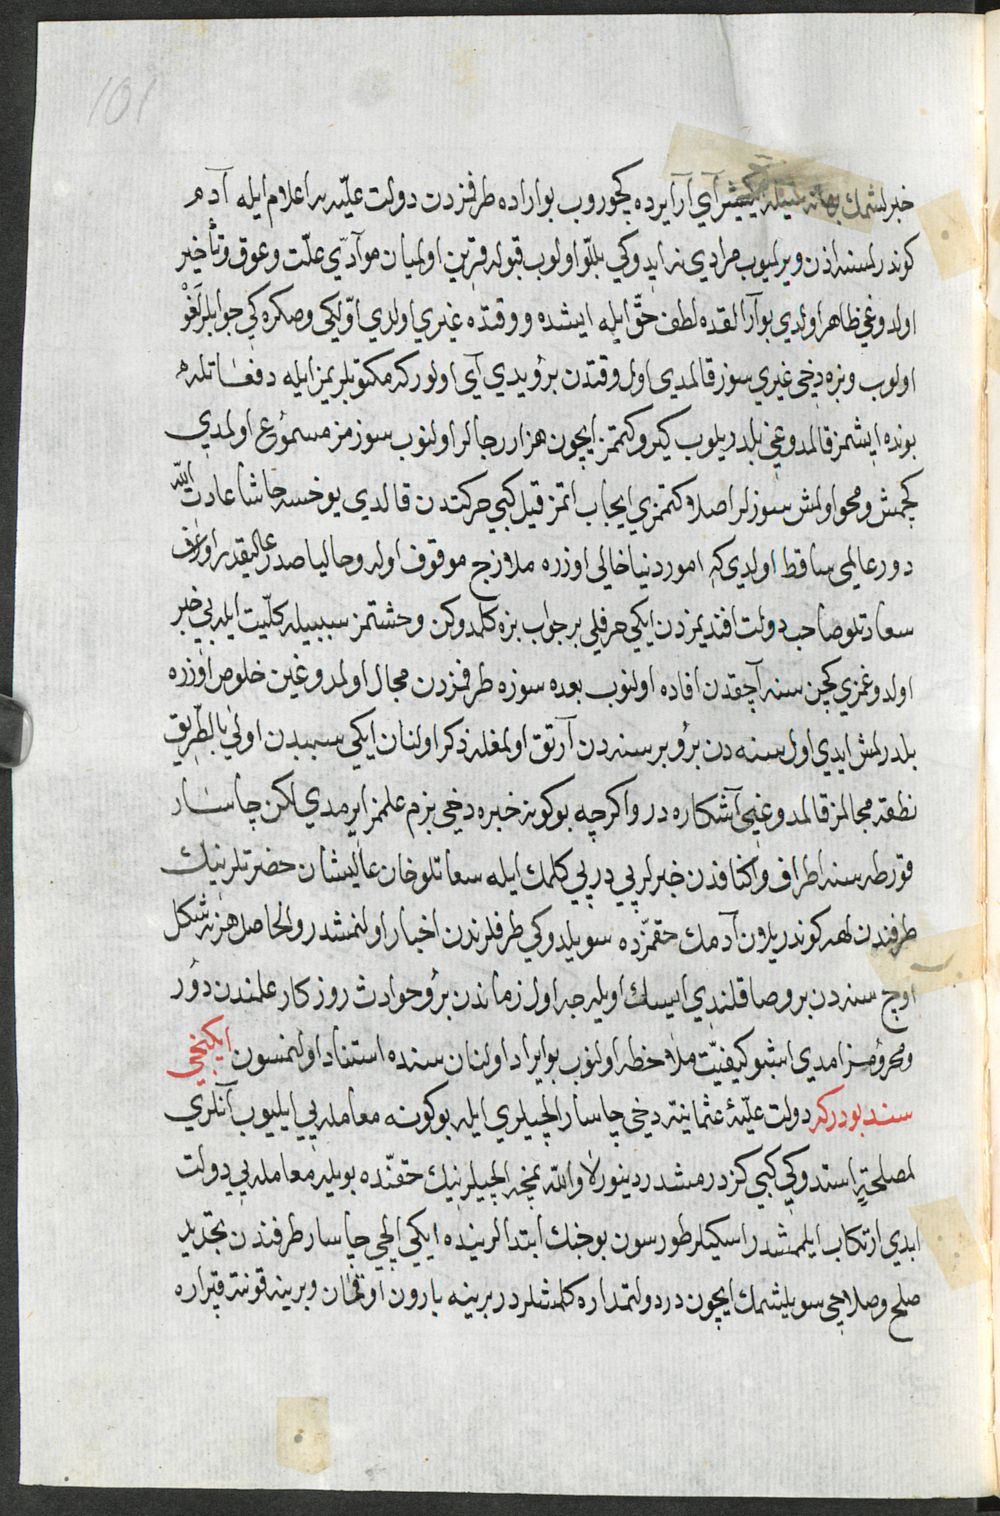 101
خبرلشمك بهانه سيله يكيشر آي آرايرده كچوروب بواراده طرفزدن دولت عليّه يه اعلام ايله آدم
كوندرلسنه اذن ويرلميوب مرادي نه ايدوكي بللّو اولوب قبوله قرين اولميان موآدّي علّت وعوق وتأخير
اولدوغي ظاهر اولدي بوآرالقده لطف حقّ ايله ايشده ووقتده غيري اولدي اوّلكي وصكره كي جوابلر لَغْوْ
اولوب وبزه دخي غيري سوز قالمدي اول وقتدن برو يدي آي اولور كه مكتوبلريمز ايله دفعاتله
بونده ايشمز قالمدوغي بلدريلوب كيرو كتمز ايچون هزار رجالر اولنوب سوزمز مسموع اولمدي
كچمش ومحو اولمش سوزلر اصلا كتمزي ايجاب اتمز قيل كبي حركتدن قالدي يوخسه حاشا عادت الله
دور عالمي ساقط اولدي كه امور دنيا خالي اوزره ملازج موقوف اوله وحاليا صدر عاليقدر اوران
سعادتلو صاحب دولت افنديمزدن ايكي حرفلي بر جواب بزه كلمدوكن وحشتمز سببيله كلّيت ايله بي خبر
اولدوغمزي كچن سنه آچقدن افاده اولنوب بعده سوزه طرفزدن مجال اولمدوغين خلوص اوزره
بلدرلمش ايدي اول سنه دن برو بر سنه دن آرتق اولمغله ذكر اولنان ايكي سببدن اولي بالطّريق
نطقه مجالمز قالمدوغي آشكاره در واكرچه بوكونه خبره دخي بزم علممز ايرمدي لكن چاسار
قورطه سنه اطراف واكنافدن خبرلر پي در پي كلمك ايله سعاتلو خان عاليشان حضرتلرينك
طرفندن لهه كوندريلان آدمك حقمزده سويلدوكي طرفلرندن اخبار اولنمشدر ولحاصل هر نه شكل
اوچ سنه دن برو صاقلندي ايسك اويله جه اول زماندن برو حوادث روزكار علمندن دور
ومحرومز امدي اشبو كيفيّت ملاحظه اولنوب بو ايراد اولنان سنده استناد اولنمسون ايكنجي
سند بودر كه دولت عليّۀ عثمانيّه دخي چاسار الچيلري ايله بوكونه معامله يي ايليوب آنلري
لمصلحةٍ استدوكي كبي كزدرمشدر دينور لا والله نمچه الچيلرينك حقنده بويله معامله يي دولت
ابدي ارتكاب ايلممشدر اسكيلر طورسون بوجنك ابتدالرينده ايكي الچي چاسار طرفندن تجديد
صلح وصلاحي سويلشمك ايچون در دولتمداره كلمشلردر برينه بارون اوتمان وبرينه قونته قپراره